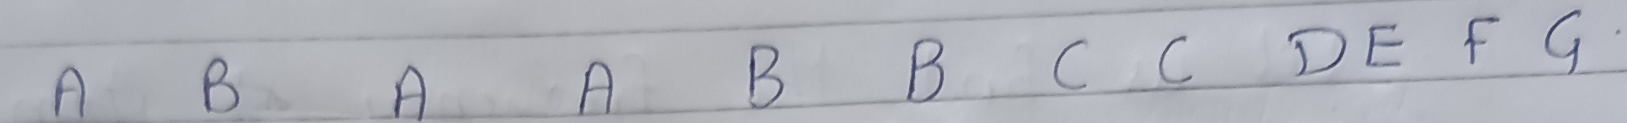 A B A A B B C C D E F G